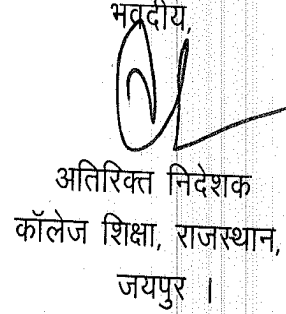 भवदीय,
अतिरिक्त निदेशक
कॉलेज शिक्षा, राजस्थान,
जयपुर ।